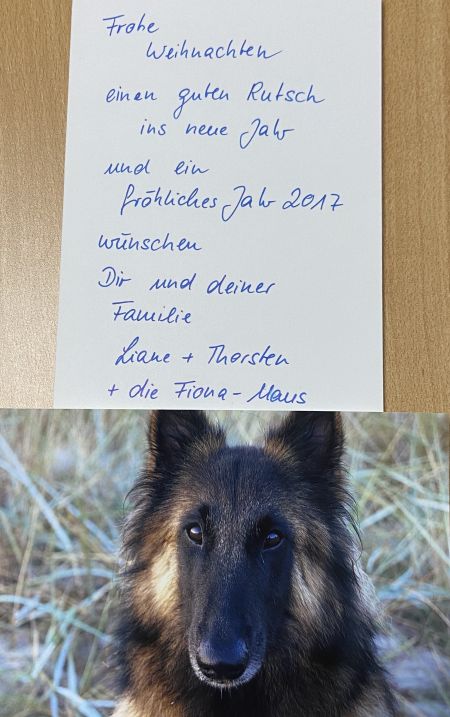 Frohe
Weihnachten
einen guten Rutsch
ins neue Jahr
und ein
fröhliches Jahr 2017
wünschen
Dir und deiner
Familie
Liane + Thorsten
+ die Fiona-Maus